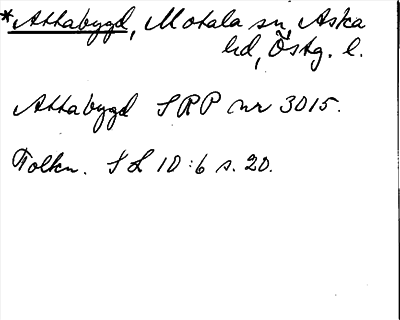 *Attabygd, Motala sn, Aska
hd, Östg. l.
Attabygd SRP nr 3015.
Tolkn. SL 10:6 s. 20.